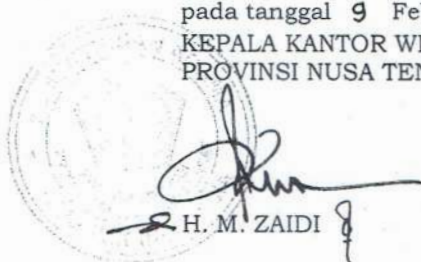 pada tanggal 9 Fe
KEPALA KANTOR W
PROVINSI NUSA TEN
H. M. ZAIDI